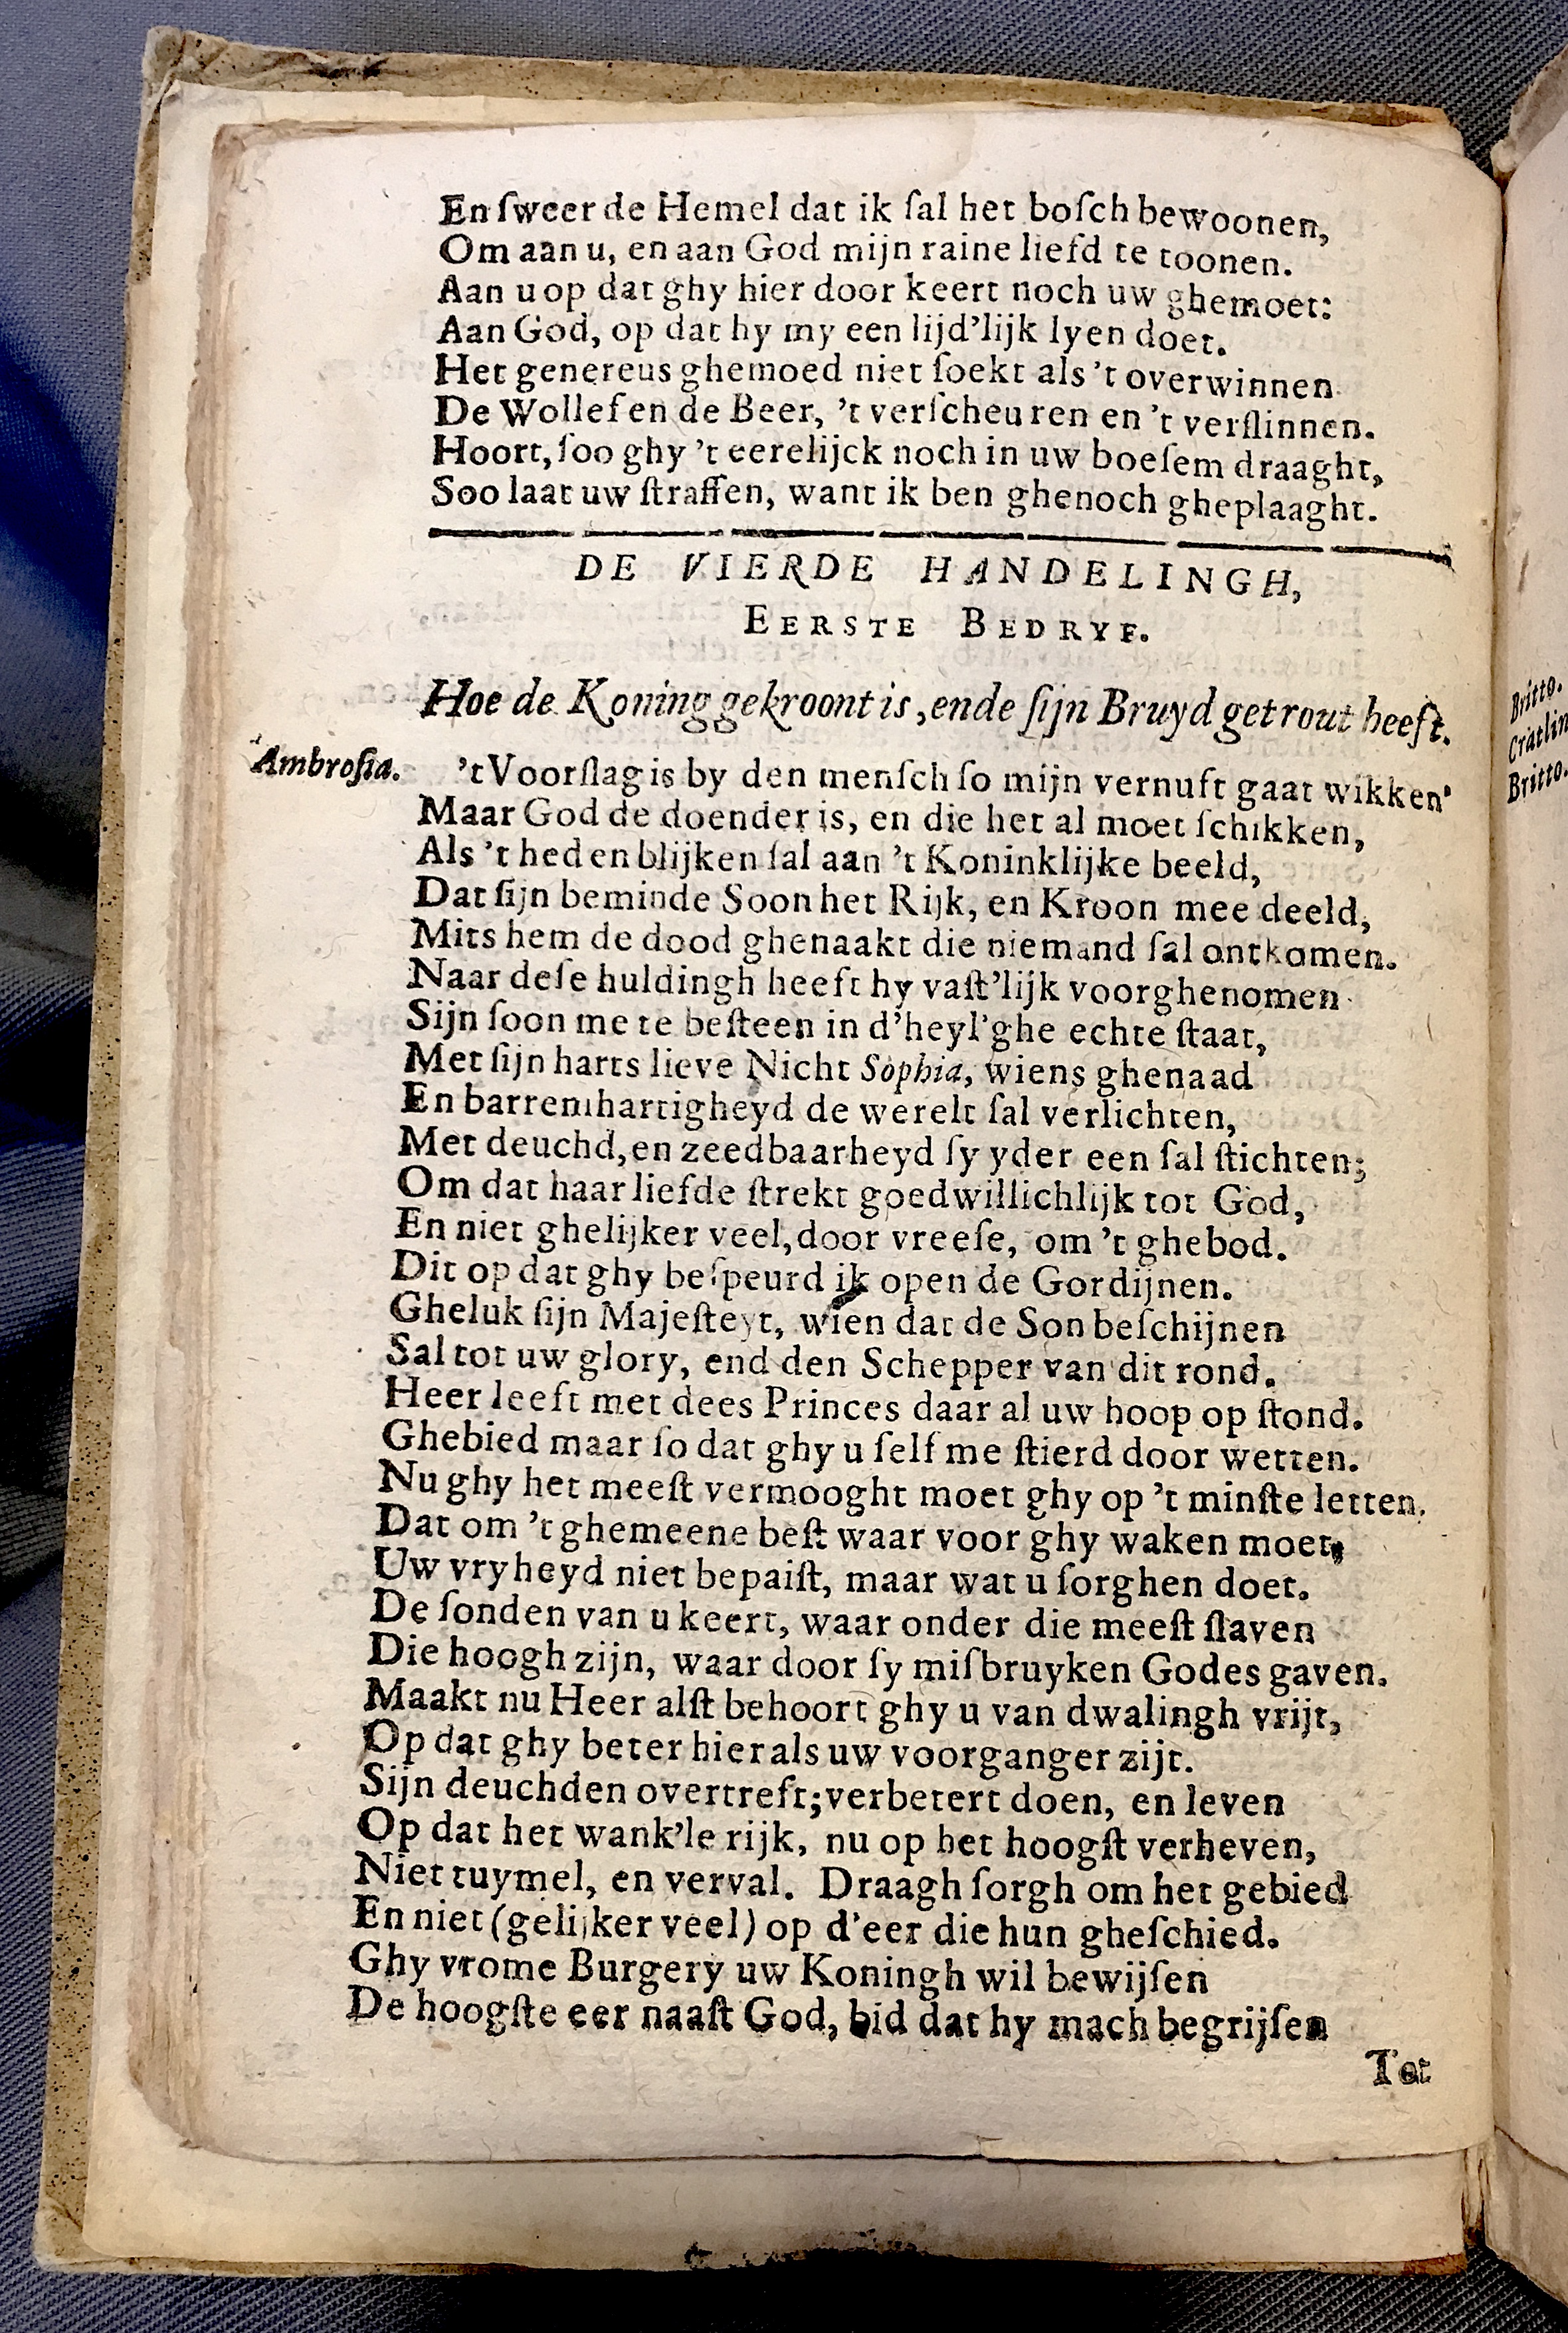 En ſweer de Hemel dat ik ſal het boſch bewoonen,
Om aan u, en aan God mijn raine liefd te toonen.
Aan u op dat ghy hier door keert noch uw ghemoet:
Aan God, op dat hy my een lijd'lijk lyen doet.
Het genereus ghemoed niet ſoekt als 't overwinnen
De Wollef en de Beer, 't verſcheuren en 't verſlinnen.
Hoort, ſoo ghy 't eerelijck noch in uw boeſem draaght,
Soo laat uw ſtraffen, want ik ben ghenoch gheplaaght.
DE VIERDE HANDELINGH,
EERSTE BEDRYF.
Hoe de Koning gekroont is, ende ſijn Bruyd getrout heeft.
Ambroſia. 't Voorſlag is by den menſch ſo mijn vernuft gaat wikken'
Maar God de doender is, en die het al moet ſchikken,
Als 't heden blijken ſal aan 't Koninklijke beeld,
Dat ſijn beminde Soon het Rijk, en Kroon mee deeld,
Mits hem de dood ghenaakt die niemand ſal ontkomen.
Naar deſe huldingh heeft hy vaſt'lijk voorghenomen
Sijn ſoon me te beſteen in d'heyl'ghe echte ſtaat,
Met ſijn harts lieve Nicht Sophia, wiens ghenaad
En barremhartigheyd de werelt ſal verlichten,
Met deuchd, en zeedbaarheyd ſy yder een ſal ſtichten;
Om dat haar liefde ſtrekt goedwillichlijk tot God,
En niet ghelijker veel, door vreeſe, om 't ghebod.
Dit op dat ghy beſpeurd ik open de Gordijnen.
Gheluk ſijn Majeſteyt, wien dat de Son beſchijnen
Sal tot uw glory, end den Schepper van dit rond.
Heer leeft met dees Princes daar al uw hoop op ſtond.
Ghebied maar ſo dat ghy u ſelf me ſtierd door wetten.
Nu ghy het meeſt vermooght moet ghy op 't minſte letten.
Dat om 't ghemeene beſt waar voor ghy waken moet,
Uw vryheyd niet bepaiſt, maar wat u ſorghen doet.
De ſonden van u keert, waar onder die meeſt ſlaven
Die hoogh zijn, waar door ſy miſbruyken Godes gaven.
Maakt nu Heer alſt behoort ghy u van dwalingh vrijt,
Op dat ghy beter hier als uw voorganger zijt.
Sijn deuchden overtreft; verbetert doen, en leven
Op dat het wank'le rijk, nu op het hoogſt verheven,
Niet tuymel, en verval. Draagh ſorgh om het gebied
En niet (gelijker veel) op d'eer die hun gheſchied.
Ghy vrome Burgery uw Koningh wil bewijſen
De hoogſte eer naaſt God, bid dat hy mach begrijſen
Tot
Britto.
Cratlin
Britto.